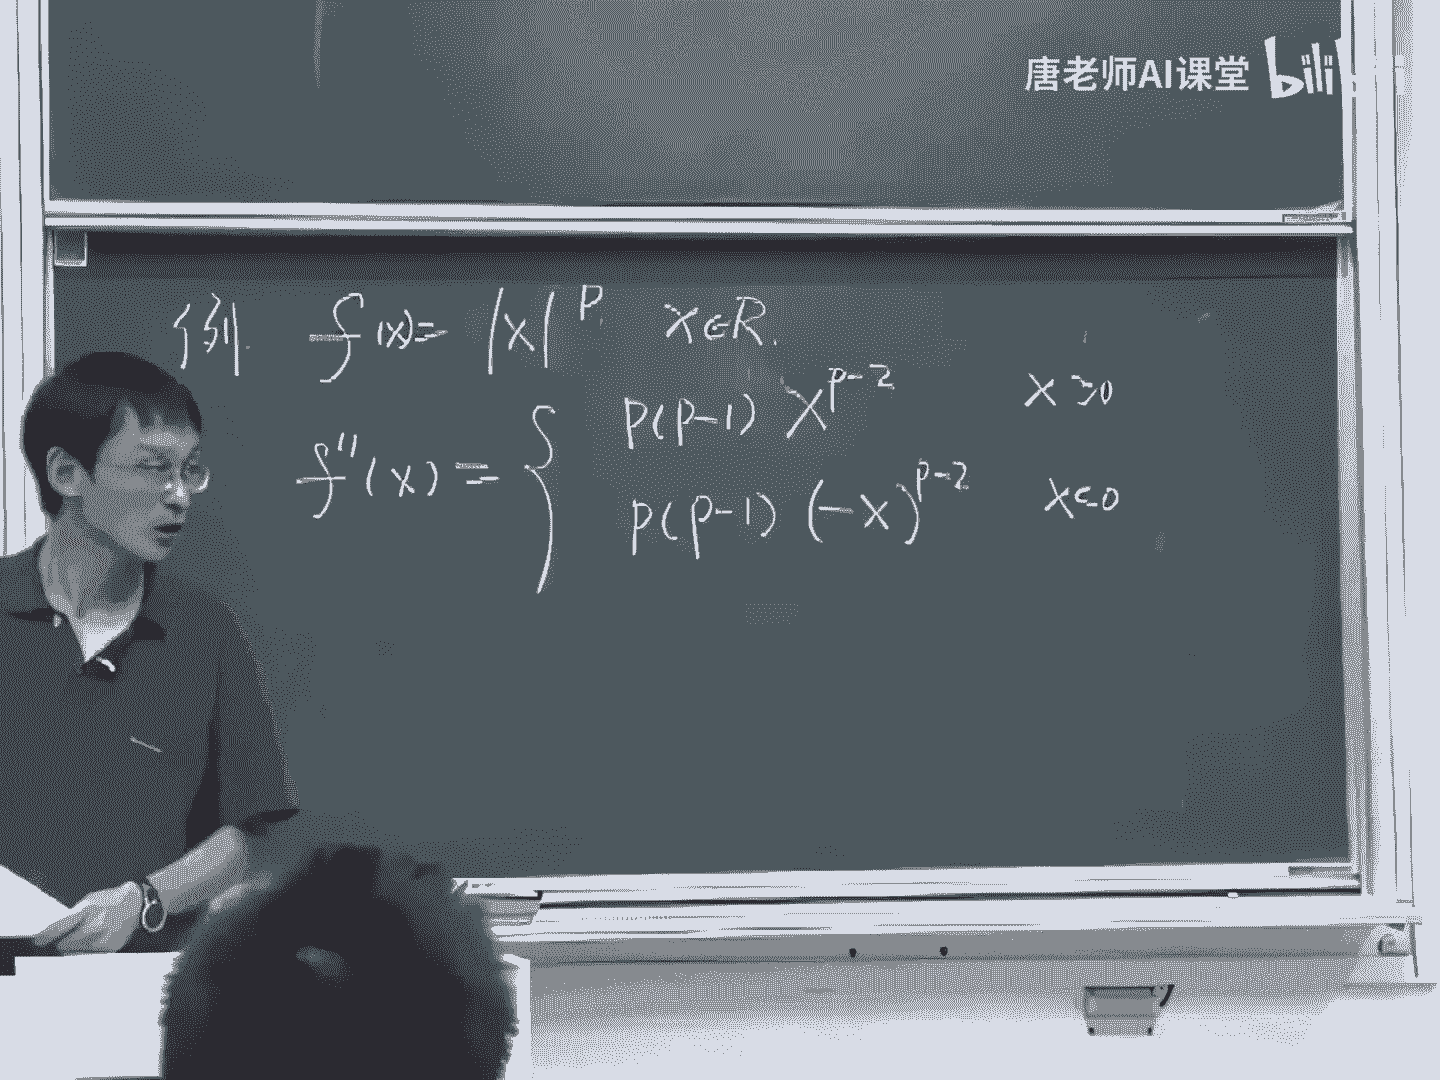 唐老师AI课堂 bili
例 f(x)= |x|^p x∈R.
f''(x) = { p(p-1) x^{p-2} x≥0
p(p-1) (-x)^{p-2} x<0